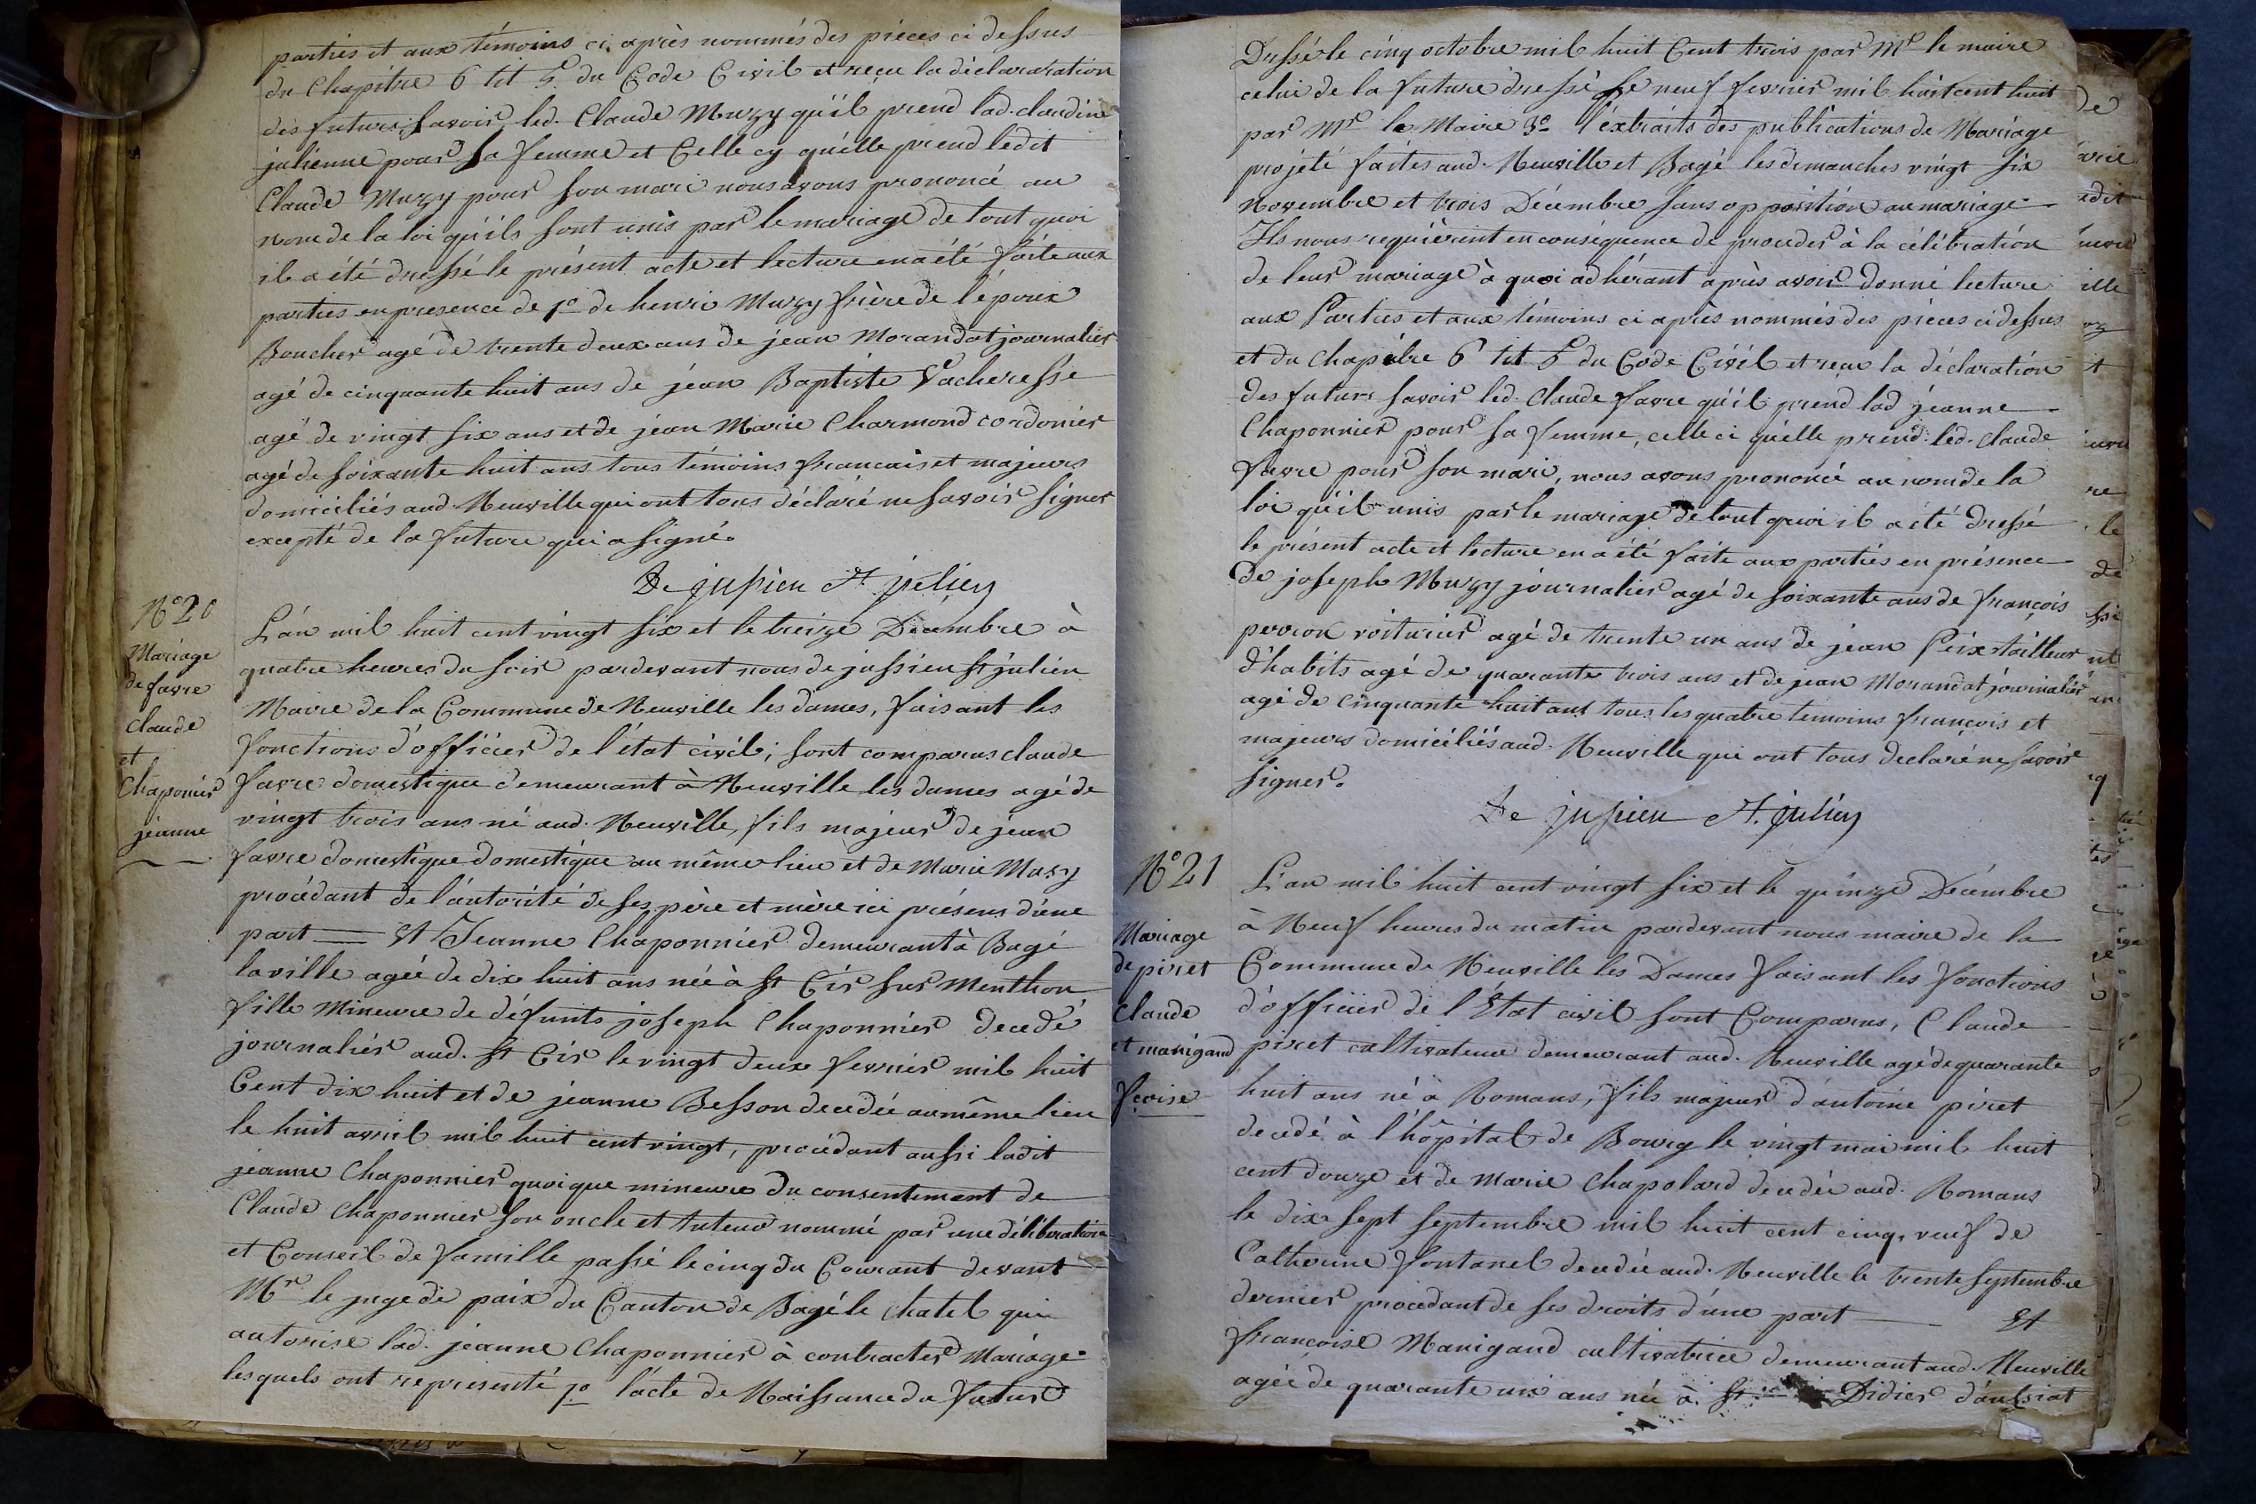 parties et aux témoins ci après nommés des pièces ci dessus
du Chapitre 6 tit 5e du Code Civil et reçu la déclararation
des futurs, savoir, led. Claude Muzy qu'il prend lad. claudine
julienne pour sa femme et Celle cy qu'elle prend ledit
Claude Muzy pour son mari nous avons prononcé au
nom de la loi qu'ils sont unis par le mariage de tout quoi
il a été dressé le présent acte et lecture en a été faite aux
parties en presence de 1o de henri Muzy frère de l'époux
Boucher agé de trente deux ans de jean Morandat journalier
agé de cinquante huit ans de jean Baptiste Vacheresse
agé de vingt six ans et de jean Marie Charmond cordonier
agé de soixante huit ans tous témoins francais et majeurs
domiciliés aud. Neuville qui ont tous déclaré ne savoir signer
excepté de la future qui a signé.
De jussieu St. julien
No 20
Mariage
de favre
claude
et
Chaponier
jeanne
L'an mil huit cent vingt six et le treize Décembre à
quatre heures du soir pardevant nous de jussieu st julien
Maire de la Commune de Neuville les dames, faisant les
fonctions d'officier de l'état civil; sont comparus claude
favre domestique demeurant à Neuville les dames agé de
vingt trois ans né aud. Neuville, fils majeur de jean
favre domestique domestique au même lieu et de Marie Muzy
procédant de l'autorité de ses père et mère ici présens d'une
part — Et Jeanne Chaponnier demeurant à Bagé
la ville agée de dix huit ans née à St Cir sur Menthon
fille Mineure de défunts joseph Chaponnier decedé
journalier aud. St Cir le vingt deux fevrier mil huit
Cent dix huit et de jeanne Besson decedée au même lieu
le huit avril mil huit cent vingt, procédant aussi ladit
jeanne Chaponnier quoique mineure du consentement de
Claude Chaponnier son oncle et tuteur nommé par une délibération
et Conseil de famille passé le cinq du Courant devant
Mr le juge de paix du Canton de Bagé le Chatel qui
autorise lad. jeanne Chaponnier à contracter Mariage
lesquels ont representé 1o l'acte de Naissance du futur
Dressé le cinq octobre mil huit Cent trois par Mr le maire
celui de la future dressé le neuf fevrier mil huit cent huit
par Mr le Maire 3o l'extraits des publications de Mariage
projeté faites aud. Neuville et Bagé les dimanches vingt six
Novembre et trois Décembre sans opposition au mariage
Ils nous requièrent en conséquence de proceder à la célébration
de leur mariage à quoi adhérant après avoir donné lecture
aux Parties et aux témoins ci après nommés des pièces ci dessus
et du chapitre 6 tit 5e du Code Civil et reçu la déclaration
des futurs savoir led. Claude favre qu'il prend lad jeanne
Chaponnier pour sa femme, celle ci qu'elle prend led. Claude
favre pour son mari, nous avons prononcé au nom de la
loi qu'il unis par le mariage de tout quoi il a été dressé
le présent acte et lecture en a été faite aux parties en présence
de joseph Muzy journalier agé de soixante ans de françois
perron voiturier agé de trente un ans de jean Peix tailleur
d'habits agé de quarante trois ans et de jean Morandat journalier
agé de Cinquante huit ans tous les quatre temoins françois et
majeurs domiciliés aud. Neuville qui ont tous declaré ne savoir
signer.
De jussieu St. julien
No 21
Mariage
de piret
Claude
et manigand
fçoise
L'an mil huit cent vingt six et le quinze Décembre
à Neuf heures du matin pardevant nous maire de la
Commune de Neuville les Dames faisant les fonctions
d'officier de l'Etat civil sont Comparus, Claude
piret cultivateur demeurant aud. Neuville agé de quarante
huit ans né à Romans, fils majeur d'antoine piret
decedé à l'hôpital de Bourg le vingt mai mil huit
cent douze et de Marie Chapolard decedée aud. Romans
le dix sept septembre mil huit cent cinq, veuf de
Catherine fontanel decedée aud. Neuville le trente septembre
dernier procedant de ses droits d'une part — Et
françoise Manigand cultivatrice demeurant aud. Neuville
agée de quarante un ans née à St Didier d'aussiat